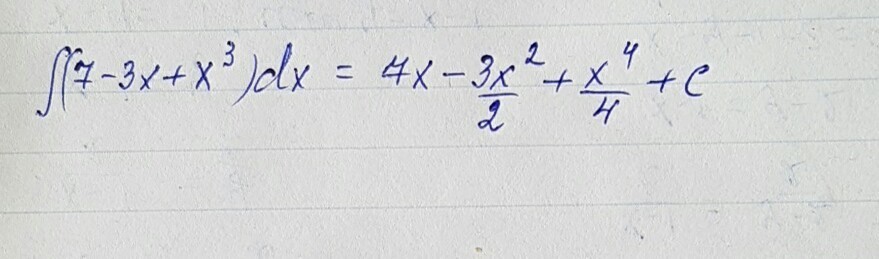 ∫(7-3x+x³)dx = 7x - 3x²/2 + x⁴/4 + c